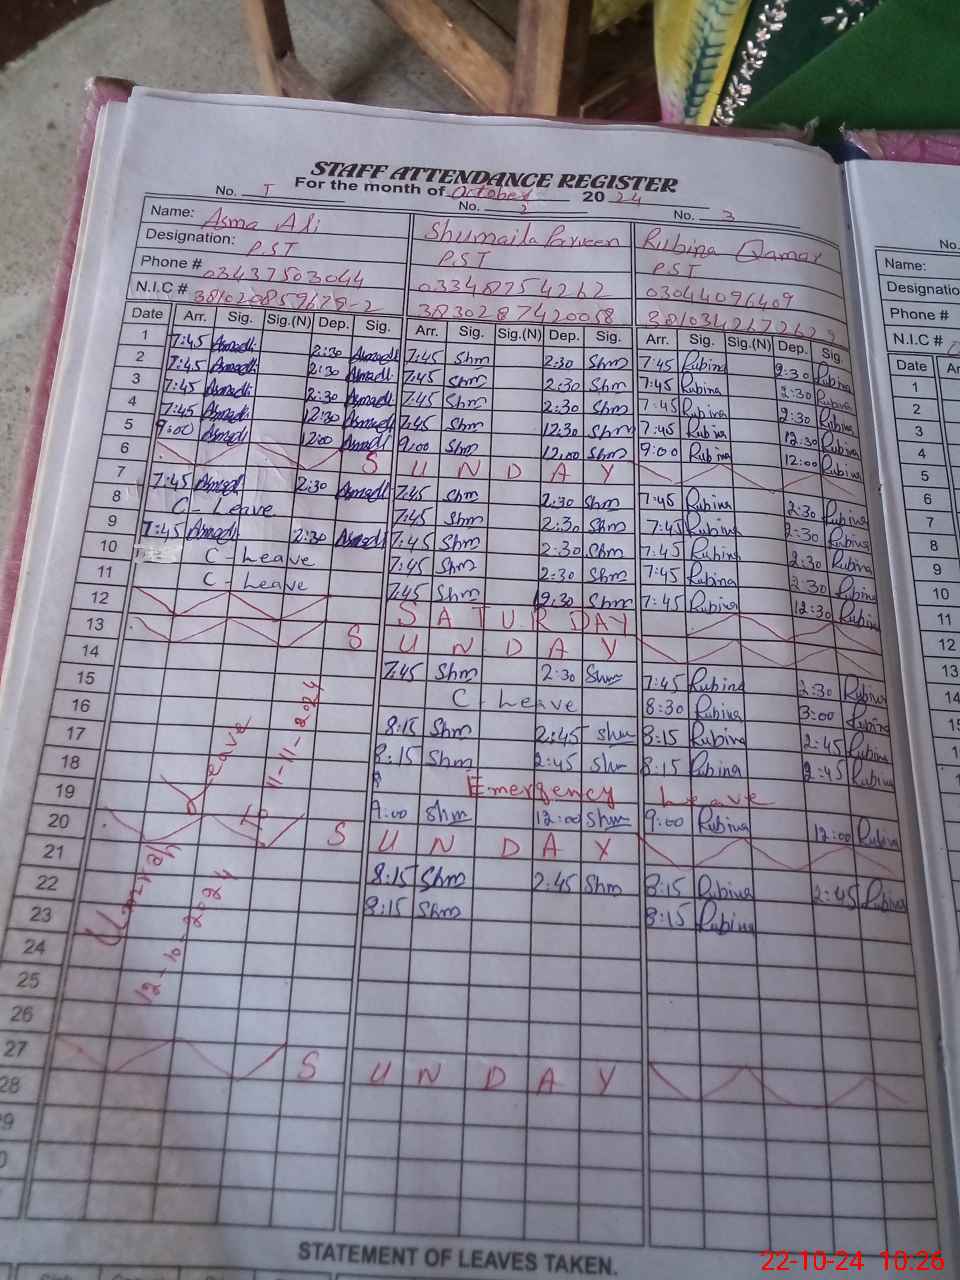 STAFF ATTENDANCE REGISTER
For the month of October 20 24
No. I No. 2 No. 3
Name: Asma Ali Shumaila Parveen Rubina Qamar
Designation: P.ST P.ST P.ST
Phone # 03437503044 03348254262 03044096409
N.I.C #
Date Arr. Sig. Sig.(N) Dep. Sig. Arr. Sig. Sig.(N) Dep. Sig. Arr. Sig. Sig.(N) Dep. Sig.
1 7:45 Asmadi 2:30 Asmadi 7:45 Shm 2:30 Shm 7:45 Rubina 2:30 Rubina
2 7:45 Asmadi 2:30 Asmadi 7:45 Shm 2:30 Shm 7:45 Rubina 2:30 Rubina
3 7:45 Asmadi 2:30 Asmadi 7:45 Shm 2:30 Shm 7:45 Rubina 2:30 Rubina
4 7:45 Asmadi 12:30 Asmadi 7:45 Shm 12:30 Shm 7:45 Rubina 12:30 Rubina
5 9:00 Asmadi 12:00 Asmadi 9:00 Shm 12:00 Shm 9:00 Rubina 12:00 Rubina
6 S U N D A Y
7 7:45 Asmadi 2:30 Asmadi 7:45 Shm 2:30 Shm 7:45 Rubina 2:30 Rubina
8 C - Leave 7:45 Shm 2:30 Shm 7:45 Rubina 2:30 Rubina
9 7:45 Asmadi 2:30 Asmadi 7:45 Shm 2:30 Shm 7:45 Rubina 2:30 Rubina
10 C - Leave 7:45 Shm 2:30 Shm 7:45 Rubina 2:30 Rubina
11 C - Leave 7:45 Shm 12:30 Shm 7:45 Rubina 12:30 Rubina
12 S A T U R D A Y
13 S U N D A Y
14 7:45 Shm 2:30 Shm 7:45 Rubina 2:30 Rubina
15 C - Leave 8:30 Rubina 3:00 Rubina
16 8:15 Shm 2:45 Shm 8:15 Rubina 2:45 Rubina
17 8:15 Shm 2:45 Shm 8:15 Rubina 2:45 Rubina
18 8 Emergency Leave
19 9:00 Shm 12:00 Shm 9:00 Rubina 12:00 Rubina
20 S U N D A Y
21 8:15 Shm 2:45 Shm 8:15 Rubina 2:45 Rubina
22 8:15 Shm 8:15 Rubina
23
24
25
26
27 S U N D A Y
28
Leave
12-10-2024 To 11-11-2024
STATEMENT OF LEAVES TAKEN.
No.
Name:
Designatio
Phone #
N.I.C #
Date Ar
1
2
3
4
5
6
7
8
9
10
11
12
13
22-10-24 10:26